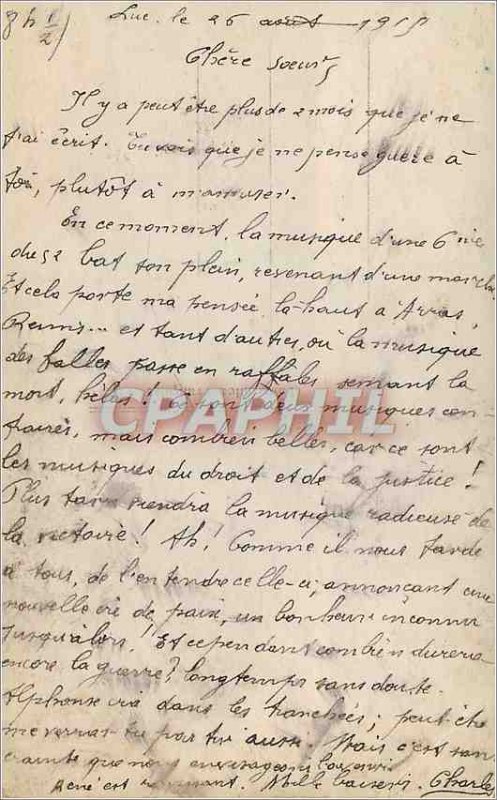 8 h 1/2) Luc. le 26 août 1915
Chère soeur,
Il y a peut être plus de 2 mois que je ne
t'ai écrit. Tu vois que je ne pense guère à
toi, plutôt à m'amuser.
En ce moment, la musique d'une 6ième
du 52 bat son plein, revenant d'une marche
Et cela porte ma pensée là-haut à Arras,
Reims... et tant d'autres, où la musique
des balles passe en raffales semant la
mort, hélas! Ce sont deux musiques con-
traires, mais combien belles, car ce sont
les musiques du droit et de la justice!
Plus tard viendra la musique radieuse de
la victoire! Ah! Comme il nous tarde
à tous, de l'entendre celle-ci, annonçant une
nouvelle ère de paix, un bonheur inconnu
jusqu'alors! Et cependant combien durera
encore la guerre? longtemps sans doute.
Alphonse ira dans les tranchées; peut-être
me verras-tu partir aussi. Mais c'est sans
crainte que nous envisageons l'avenir.
René est Mille baisers. Charles
CPAPHIL